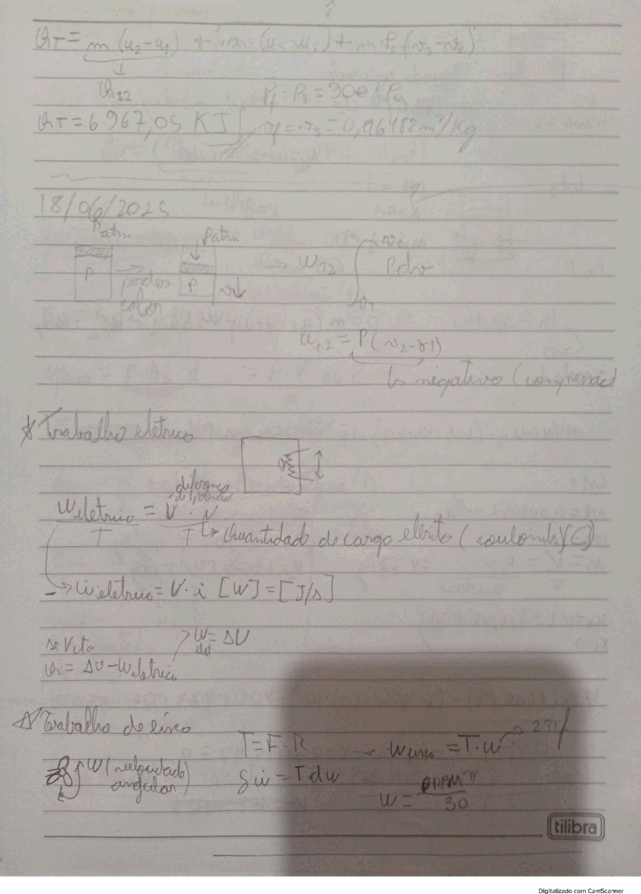 QT = m (u2-u1) + m (u3-u2) + m·P3 (v3-v2)
Q12
P1 = P3 = 300 KPa
QT = 6967,05 KJ v1 = v3 = 0,06482 m³/Kg
18/06/2025
Patm Patm
P → perder calor P v↓ → W12 ∫ v2 v1 Pdv
W12 = P(v2-v1)
↳ negativo (compressão)
* Trabalho elétrico
diferença de potencial
Welétrico = V · N
↳ Quantidade de carga elétrica (coulombs)(C)
→ Ẇelétrico = V·i [W] = [J/s]
W elet = ΔU
Q = ΔU - Welétrico
* Trabalho de eixo
T = F·R → Weixo = T·w → 2π
w (velocidade angular)
δẇ = T dw
w = RPM π / 30
tilibra
Digitalizado com CamScanner